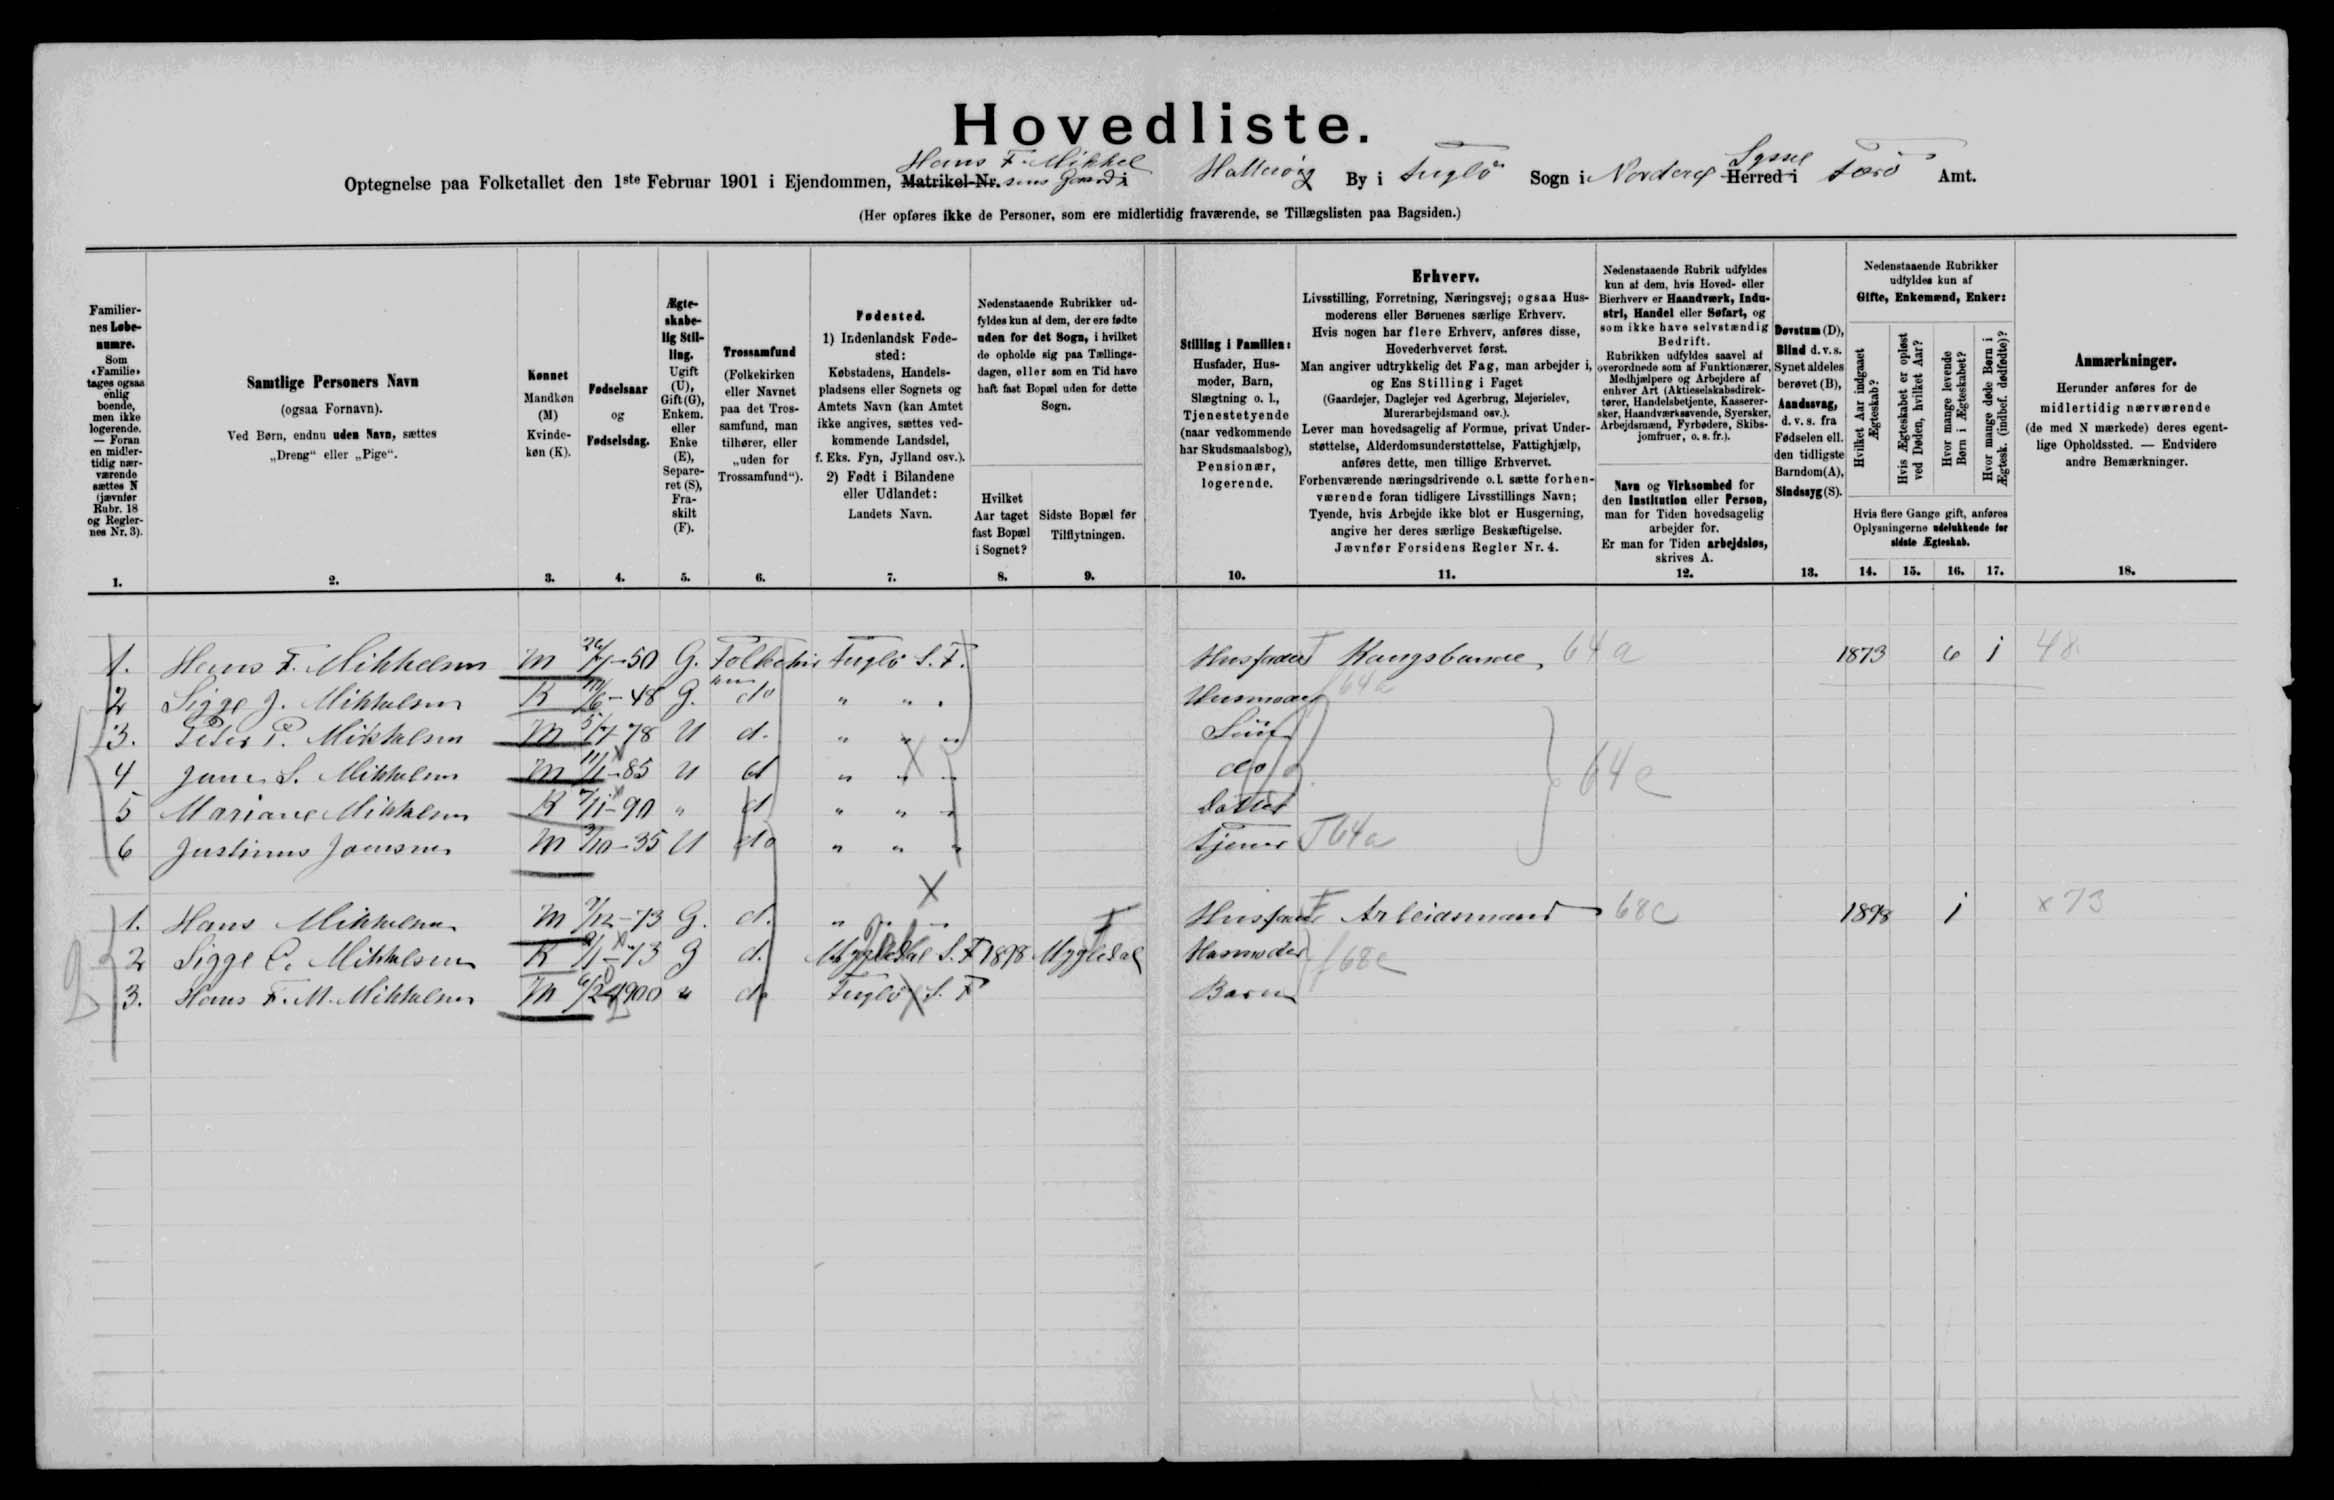 Hovedliste.
Optegnelse paa Folketallet den 1ste Februar 1901 i Ejendommen, Matrikel-Nr. Hans F. Mikkelsens Gaard i Hattervig By i Fuglö Sogn i Norderø Herred i Syssel Færö Amt.
(Her opføres ikke de Personer, som ere midlertidig fraværende, se Tillægslisten paa Bagsiden.)
Familiernes Løbenumre.
Som «Familie» tages ogsaa enlig boende, men ikke logerende. — Foran en midlertidig nærværende sættes N (jævnfør Rubr. 18 og Reglernes Nr. 3).
Samtlige Personers Navn
(ogsaa Fornavn).
Ved Børn, endnu uden Navn, sættes
„Dreng“ eller „Pige“.
Kønnet
Mandkøn (M)
Kvindekøn (K).
Fødselsaar
og
Fødselsdag.
Ægteskabelig Stilling.
Ugift (U), Gift (G), Enkem. eller Enke (E), Separeret (S), Fraskilt (F).
Trossamfund
(Folkekirken eller Navnet paa det Trossamfund, man tilhører, eller „uden for Trossamfund“).
Fødested.
1) Indenlandsk Fødested:
Købstadens, Handelspladsens eller Sognets og Amtets Navn (kan Amtet ikke angives, sættes vedkommende Landsdel, f. Eks. Fyn, Jylland osv.).
2) Født i Bilandene eller Udlandet:
Landets Navn.
Nedenstaaende Rubrikker udfyldes kun af dem, der ere fødte uden for det Sogn, i hvilket de opholde sig paa Tællingsdagen, eller som en Tid have haft fast Bopæl uden for dette Sogn.
Hvilket Aar taget fast Bopæl i Sognet?
Sidste Bopæl før Tilflytningen.
Stilling i Familien:
Husfader, Husmoder, Barn, Slægtning o. l., Tjenestetyende (naar vedkommende har Skudsmaalsbog), Pensionær, logerende.
Erhverv.
Livsstilling, Forretning, Næringsvej; ogsaa Husmoderens eller Børnenes særlige Erhverv.
Hvis nogen har flere Erhverv, anføres disse, Hovederhvervet først.
Man angiver udtrykkelig det Fag, man arbejder i, og Ens Stilling i Faget
(Gaardejer, Daglejer ved Agerbrug, Mejerielev, Murerarbejdsmand osv.).
Lever man hovedsagelig af Formue, privat Understøttelse, Alderdomsunderstøttelse, Fattighjælp, anføres dette, men tillige Erhvervet.
Forhenværende næringsdrivende o. l. sætte forhenværende foran tidligere Livsstillings Navn;
Tyende, hvis Arbejde ikke blot er Husgerning, angive her deres særlige Beskæftigelse.
Jævnfør Forsidens Regler Nr. 4.
Nedenstaaende Rubrik udfyldes kun af dem, hvis Hoved- eller Bierhverv er Haandværk, Industri, Handel eller Søfart, og som ikke have selvstændig Bedrift.
Rubrikken udfyldes saavel af overordnede som af Funktionærer, Medhjælpere og Arbejdere af enhver Art (Aktieselskabsdirektører, Handelsbetjente, Kasserersker, Haandværkssvende, Syersker, Arbejdsmænd, Fyrbødere, Skibsjomfruer, o. s. fr.).
Navn og Virksomhed for den Institution eller Person, man for Tiden hovedsagelig arbejder for.
Er man for Tiden arbejdsløs, skrives A.
Døvstum (D), Blind d. v. s. Synet aldeles berøvet (B), Aandssvag, d. v. s. fra Fødselen ell. den tidligste Barndom (A), Sindssyg (S).
Nedenstaaende Rubrikker udfyldes kun af
Gifte, Enkemænd, Enker:
Hvilket Aar indgaaet Ægteskab?
Hvis Ægteskabet er opløst ved Døden, hvilket Aar?
Hvor mange levende Børn i Ægteskabet?
Hvor mange døde Børn i Ægtesk. (indbef. dødfødte)?
Hvis flere Gange gift, anføres Oplysningerne udelukkende for sidste Ægteskab.
Anmærkninger.
Herunder anføres for de midlertidig nærværende (de med N mærkede) deres egentlige Opholdssted. — Endvidere andre Bemærkninger.
1. 2. 3. 4. 5. 6. 7. 8. 9. 10. 11. 12. 13. 14. 15. 16. 17. 18.
1. Hans F. Mikkelsen M -50 G. Folkekirken Fuglö S. F. Husfader Kongsbonde 64a 1873 6 1 48
2 Sigge J. Mikkelsen K -48 G. do " " Husmoder 64a
3. Peter P. Mikkelsen M 78 U d. " " " Sön
4 M 11/1-85 U d " " " do 64e
5 Mariane Mikkelsen K 7/11-90 " d " " " Datter
6 Justinus Joensen M 3/10-35 U do " " " Tjener 64a
1. Hans Mikkelsen M 7/12-73 G. d. " " " Husfader Arbeidsmand 68c 1898 1 x 73
2 Sigge C. Mikkelsen K -73 G d. Mygledal S. F 1898 Mygledal Husmoder 68c
3. Hans F. M. Mikkelsen M 6/2 1900 " do Fuglö S. F Barn